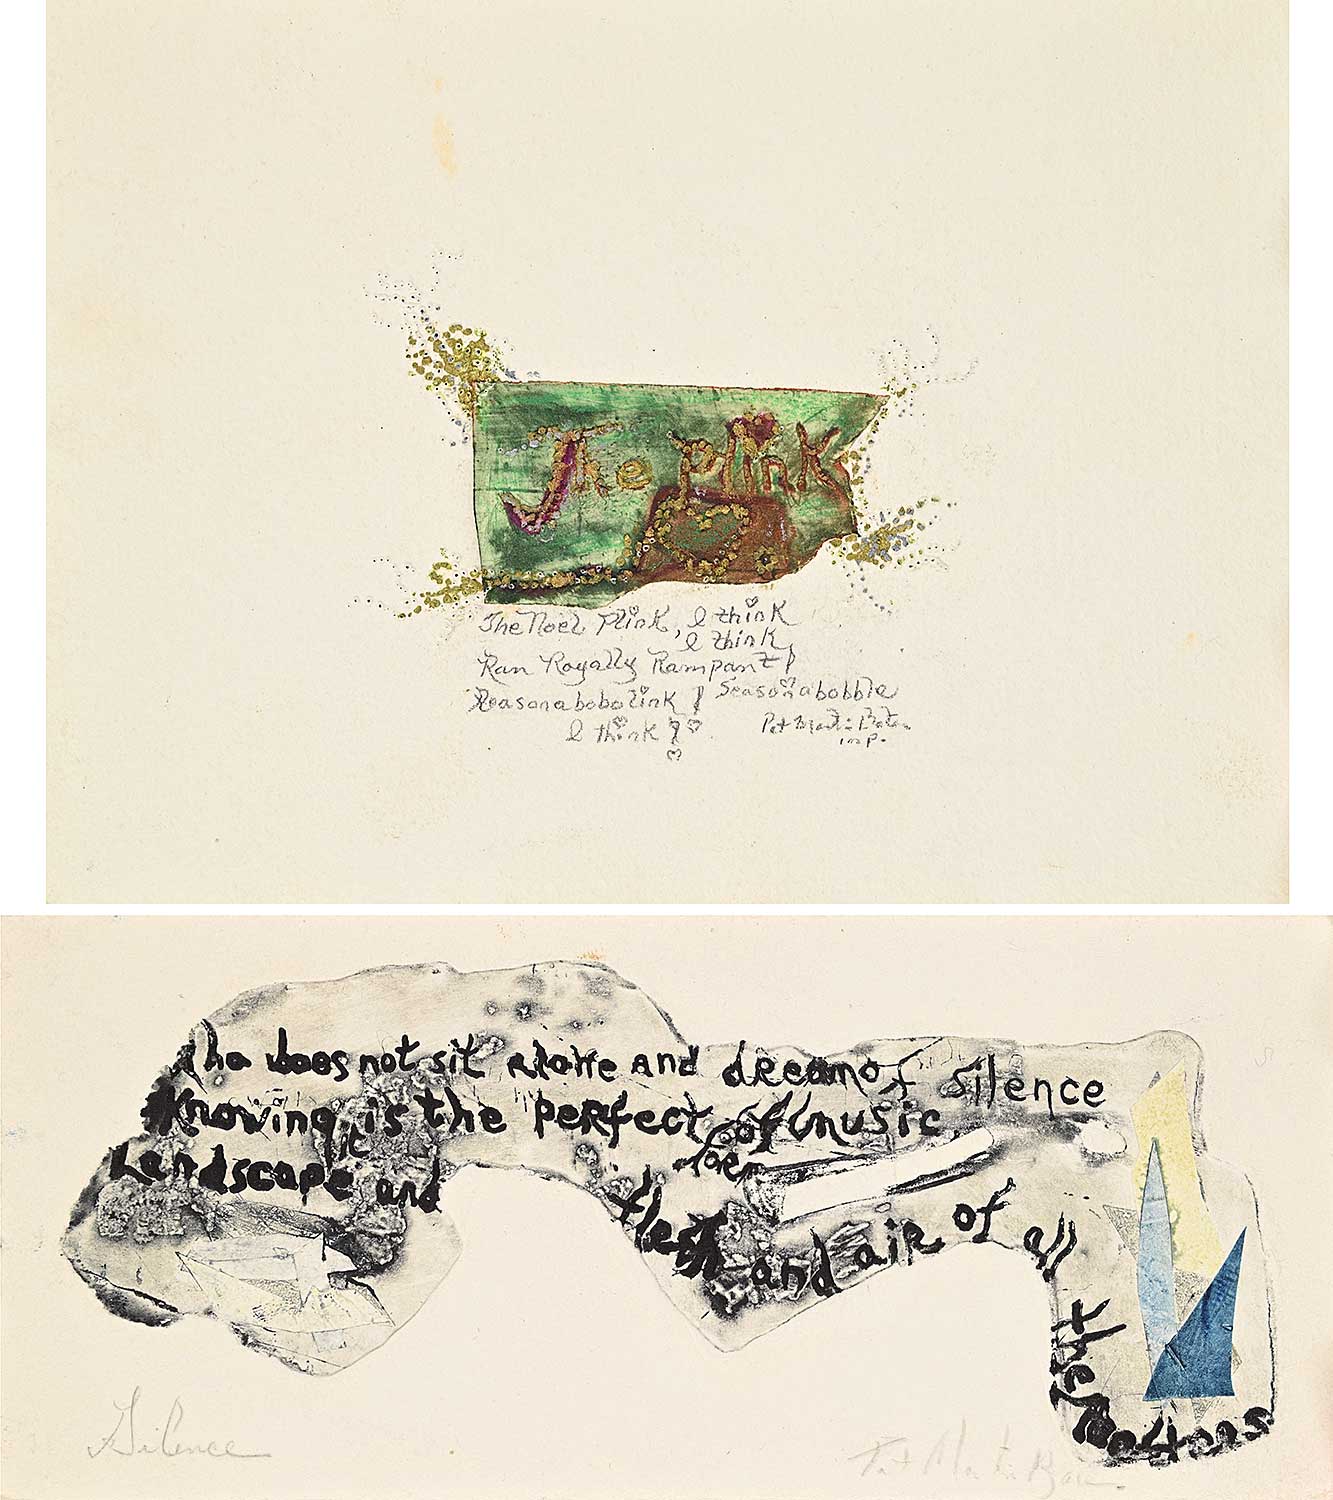 The Plink
The Noel Plink, I think
I think
Ran Royally Rampant!
Reasonabobolink! Seasonabobble
I think?
Pat Martin Bates
imp.
Who does not sit alone and dream of silence
Knowing it is the perfect of music,
Landscape and for
flesh and air of all
the
Silence
Pat Martin Bates